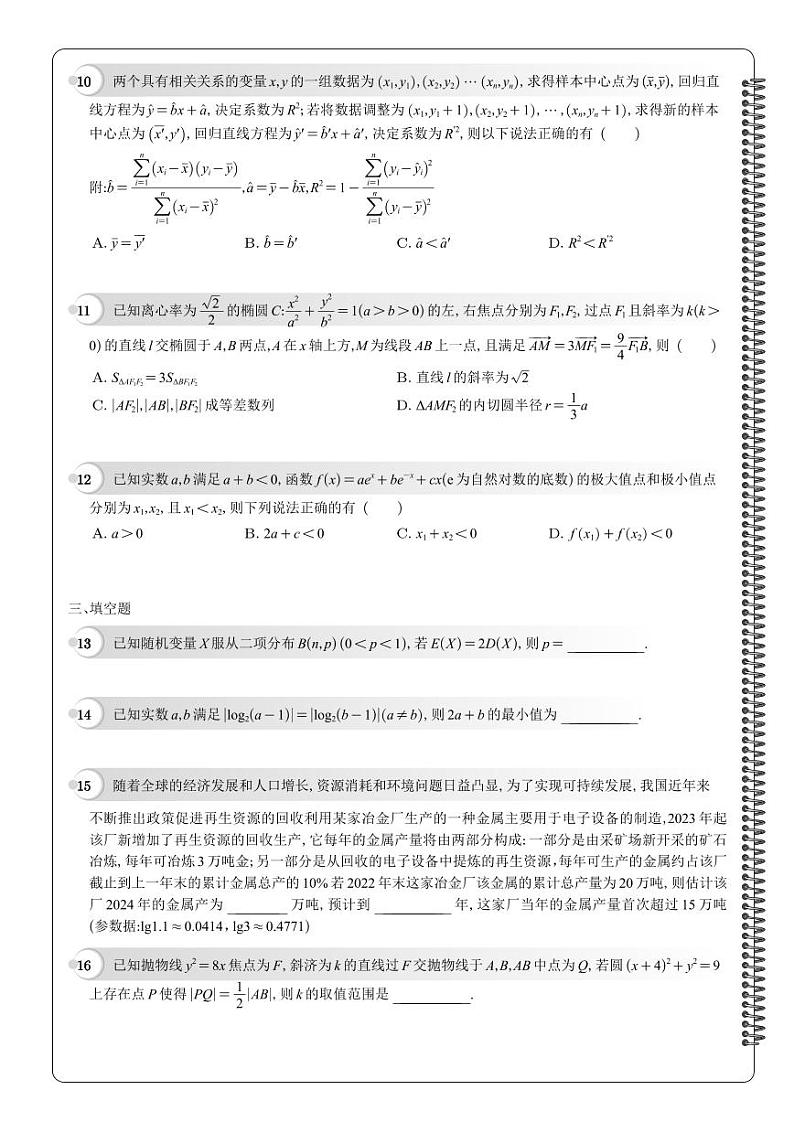 10 两个具有相关关系的变量 x,y 的一组数据为 (x₁,y₁),(x₂,y₂)⋯(xₙ,yₙ), 求得样本中心点为 (x̄,ȳ), 回归直
线方程为 ŷ = b̂x + â, 决定系数为 R²; 若将数据调整为 (x₁,y₁+1),(x₂,y₂+1),⋯,(xₙ,yₙ+1), 求得新的样本
中心点为 (x̄′,y′), 回归直线方程为 ŷ′ = b̂′x + â′, 决定系数为 R′², 则以下说法正确的有 ( )
附: b̂ = ∑ᵢ₌₁ⁿ(xᵢ−x̄)(yᵢ−ȳ) / ∑ᵢ₌₁ⁿ(xᵢ−x̄)², â = ȳ − b̂x̄, R² = 1 − ∑ᵢ₌₁ⁿ(yᵢ−ŷᵢ)² / ∑ᵢ₌₁ⁿ(yᵢ−ȳ)²
A. ȳ = ȳ′ B. b̂ = b̂′ C. â < â′ D. R² < R′²
11 已知离心率为 √2/2 的椭圆 C: x²/a² + y²/b² = 1(a > b > 0) 的左, 右焦点分别为 F₁,F₂, 过点 F₁ 且斜率为 k(k >
0) 的直线 l 交椭圆于 A,B 两点,A 在 x 轴上方,M 为线段 AB 上一点, 且满足 AM→ = 3MF₁→ = 9/4 F₁B→, 则 ( )
A. S△AF₁F₂ = 3S△BF₁F₂ B. 直线 l 的斜率为 √2
C. |AF₂|,|AB|,|BF₂| 成等差数列 D. ΔAMF₂ 的内切圆半径 r = 1/3 a
12 已知实数 a,b 满足 a + b < 0, 函数 f(x) = aeˣ + be⁻ˣ + cx(e 为自然对数的底数) 的极大值点和极小值点
分别为 x₁,x₂, 且 x₁ < x₂, 则下列说法正确的有 ( )
A. a > 0 B. 2a + c < 0 C. x₁ + x₂ < 0 D. f(x₁) + f(x₂) < 0
三、填空题
13 已知随机变量 X 服从二项分布 B(n,p)(0 < p < 1), 若 E(X) = 2D(X), 则 p = ________.
14 已知实数 a,b 满足 |log₂(a − 1)| = |log₂(b − 1)|(a ≠ b), 则 2a + b 的最小值为 ________.
15 随着全球的经济发展和人口增长, 资源消耗和环境问题日益凸显, 为了实现可持续发展, 我国近年来
不断推出政策促进再生资源的回收利用某家冶金厂生产的一种金属主要用于电子设备的制造,2023 年起
该厂新增加了再生资源的回收生产, 它每年的金属产量将由两部分构成: 一部分是由采矿场新开采的矿石
冶炼, 每年可冶炼 3 万吨金; 另一部分是从回收的电子设备中提炼的再生资源, 每年可生产的金属约占该厂
截止到上一年末的累计金属总产的 10% 若 2022 年末这家冶金厂该金属的累计总产量为 20 万吨, 则估计该
厂 2024 年的金属产为 ________ 万吨, 预计到 ________ 年, 这家厂当年的金属产量首次超过 15 万吨
(参数据:lg1.1 ≈ 0.0414, lg3 ≈ 0.4771)
16 已知抛物线 y² = 8x 焦点为 F, 斜济为 k 的直线过 F 交抛物线于 A,B,AB 中点为 Q, 若圆 (x + 4)² + y² = 9
上存在点 P 使得 |PQ| = 1/2 |AB|, 则 k 的取值范围是 ________.